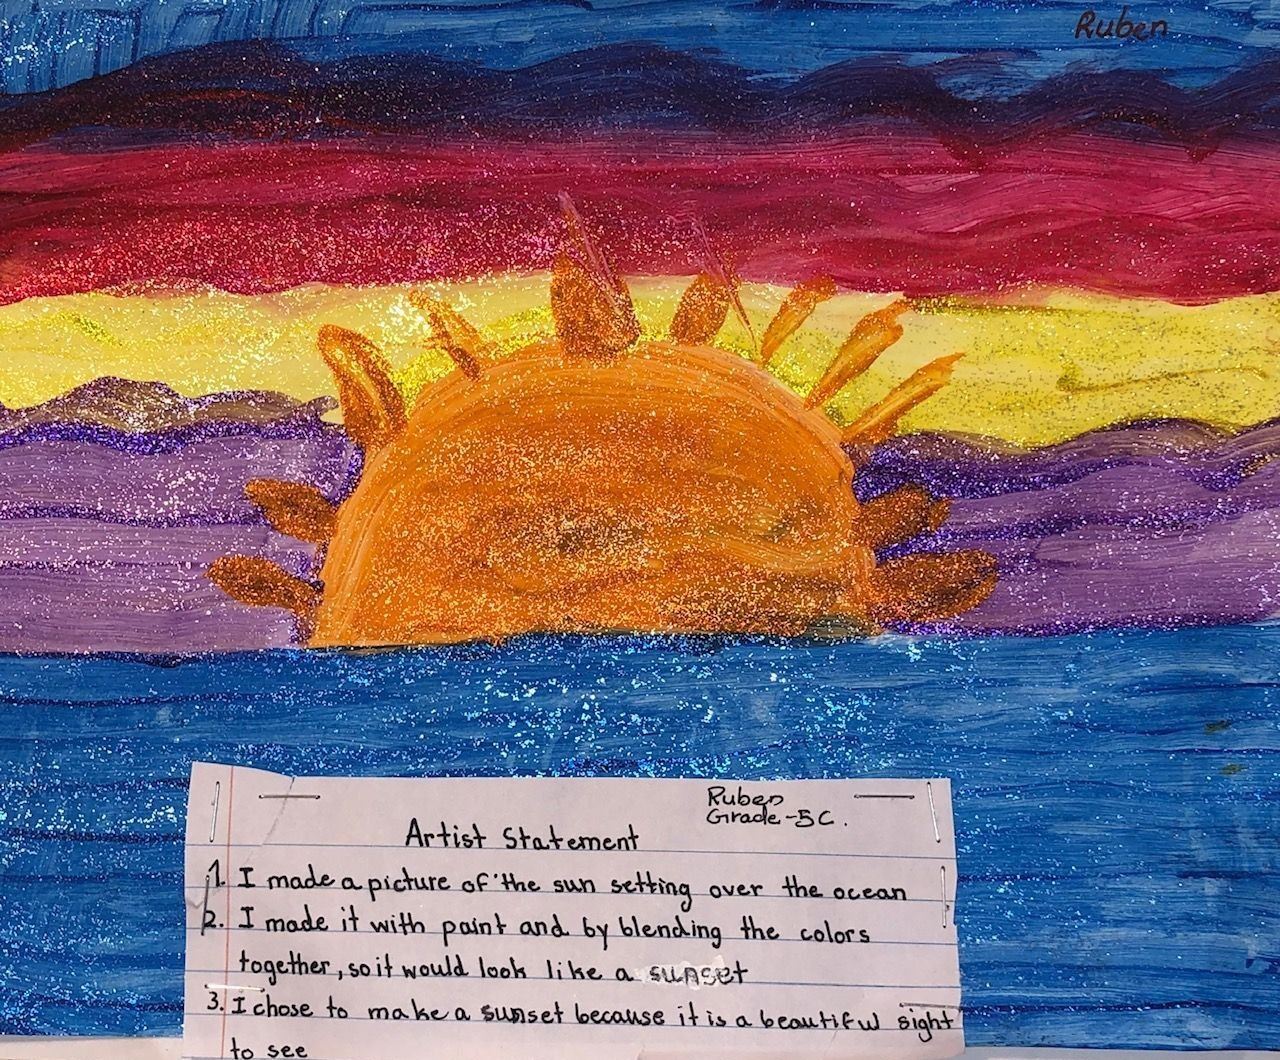 Ruben
Ruben
Grade-5C.
Artist Statement
1. I made a picture of the sun setting over the ocean
2. I made it with paint and by blending the colors
together, so it would look like a sunset
3. I chose to make a sunset because it is a beautiful sight
to see